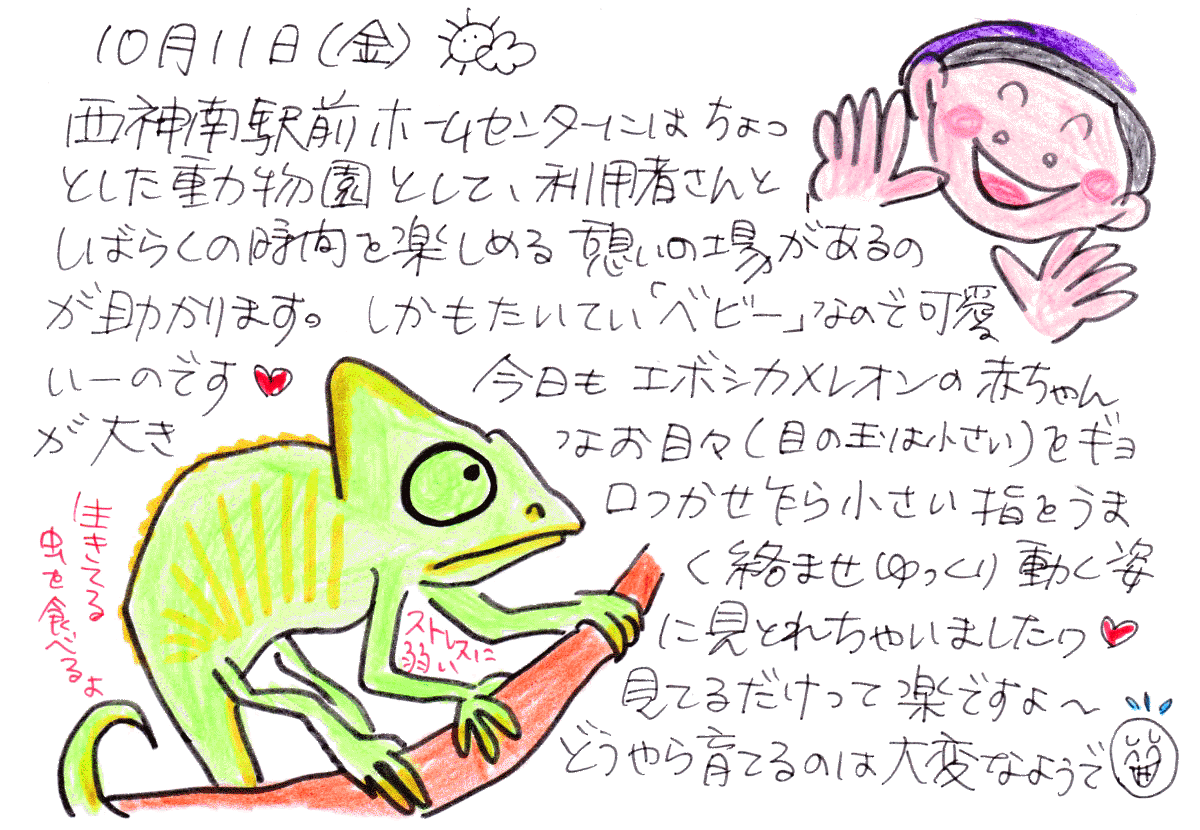 10月11日(金)
西神南駅前ホームセンターにはちょっ
とした動物園として、利用者さんと
しばらくの時間を楽しめる憩いの場があるの
が助かります。しかもたいてい「ベビー」なので可愛
いーのです
今日もエボシカメレオンの赤ちゃん
が大き
なお目々(目の玉は小さい)をギョ
ロつかせ乍ら小さい指をうま
く絡ませゆっくり動く姿
に見とれちゃいましたワ
見てるだけって楽ですよ〜
どうやら育てるのは大変なようで
生きてる
虫を食べるよ
ストレスに
弱い